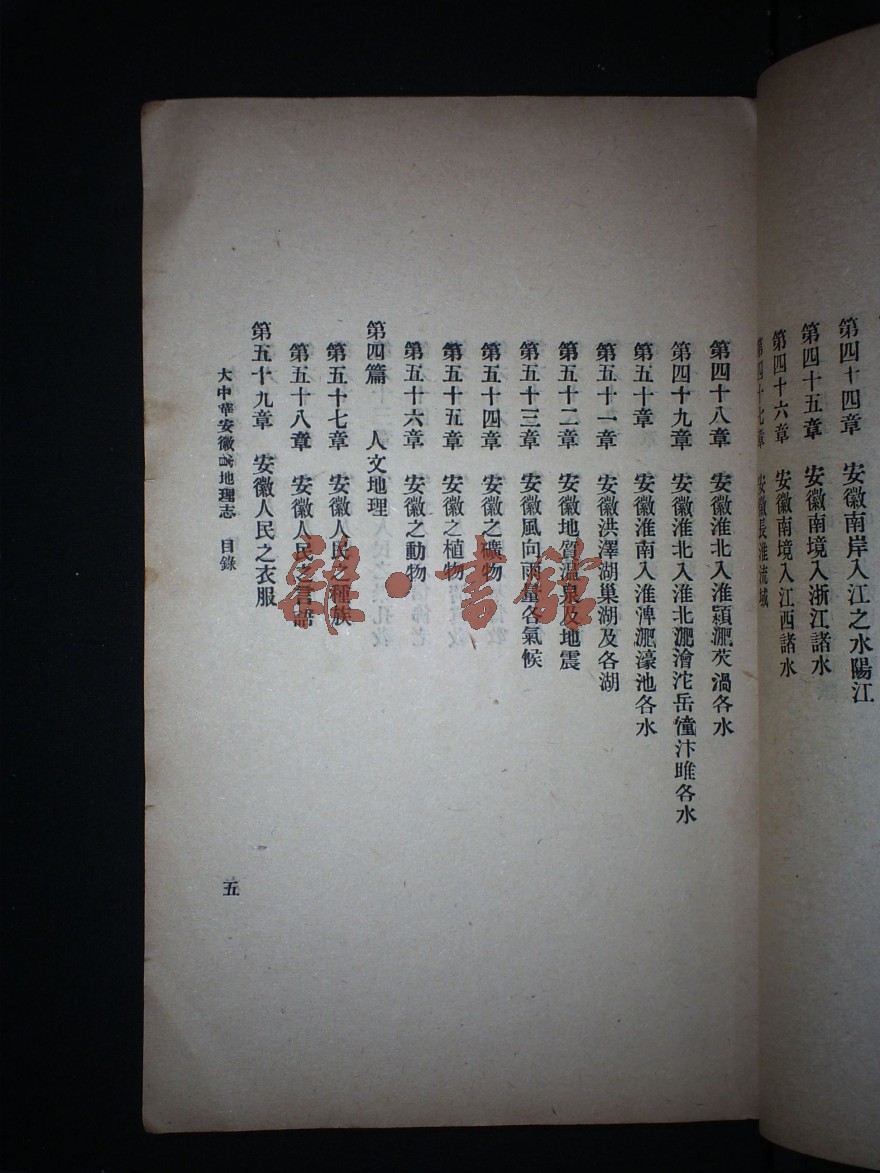 第四十四章　安徽南岸入江之水陽江
第四十五章　安徽南境入浙江諸水
第四十六章　安徽南境入江西諸水
第四十七章　安徽長淮流域
第四十八章　安徽淮北入淮潁淝芡渦各水
第四十九章　安徽淮北入淮北淝澮沱岳潼汴睢各水
第五十章　安徽淮南入淮淠淝濠池各水
第五十一章　安徽洪澤湖巢湖及各湖
第五十二章　安徽地質溫泉及地震
第五十三章　安徽風向雨量各氣候
第五十四章　安徽之礦物
第五十五章　安徽之植物
第五十六章　安徽之動物
第四篇　人文地理
第五十七章　安徽人民之種族
第五十八章　安徽人民之言語
第五十九章　安徽人民之衣服
大中華安徽省地理志　目錄
五
雒·書館